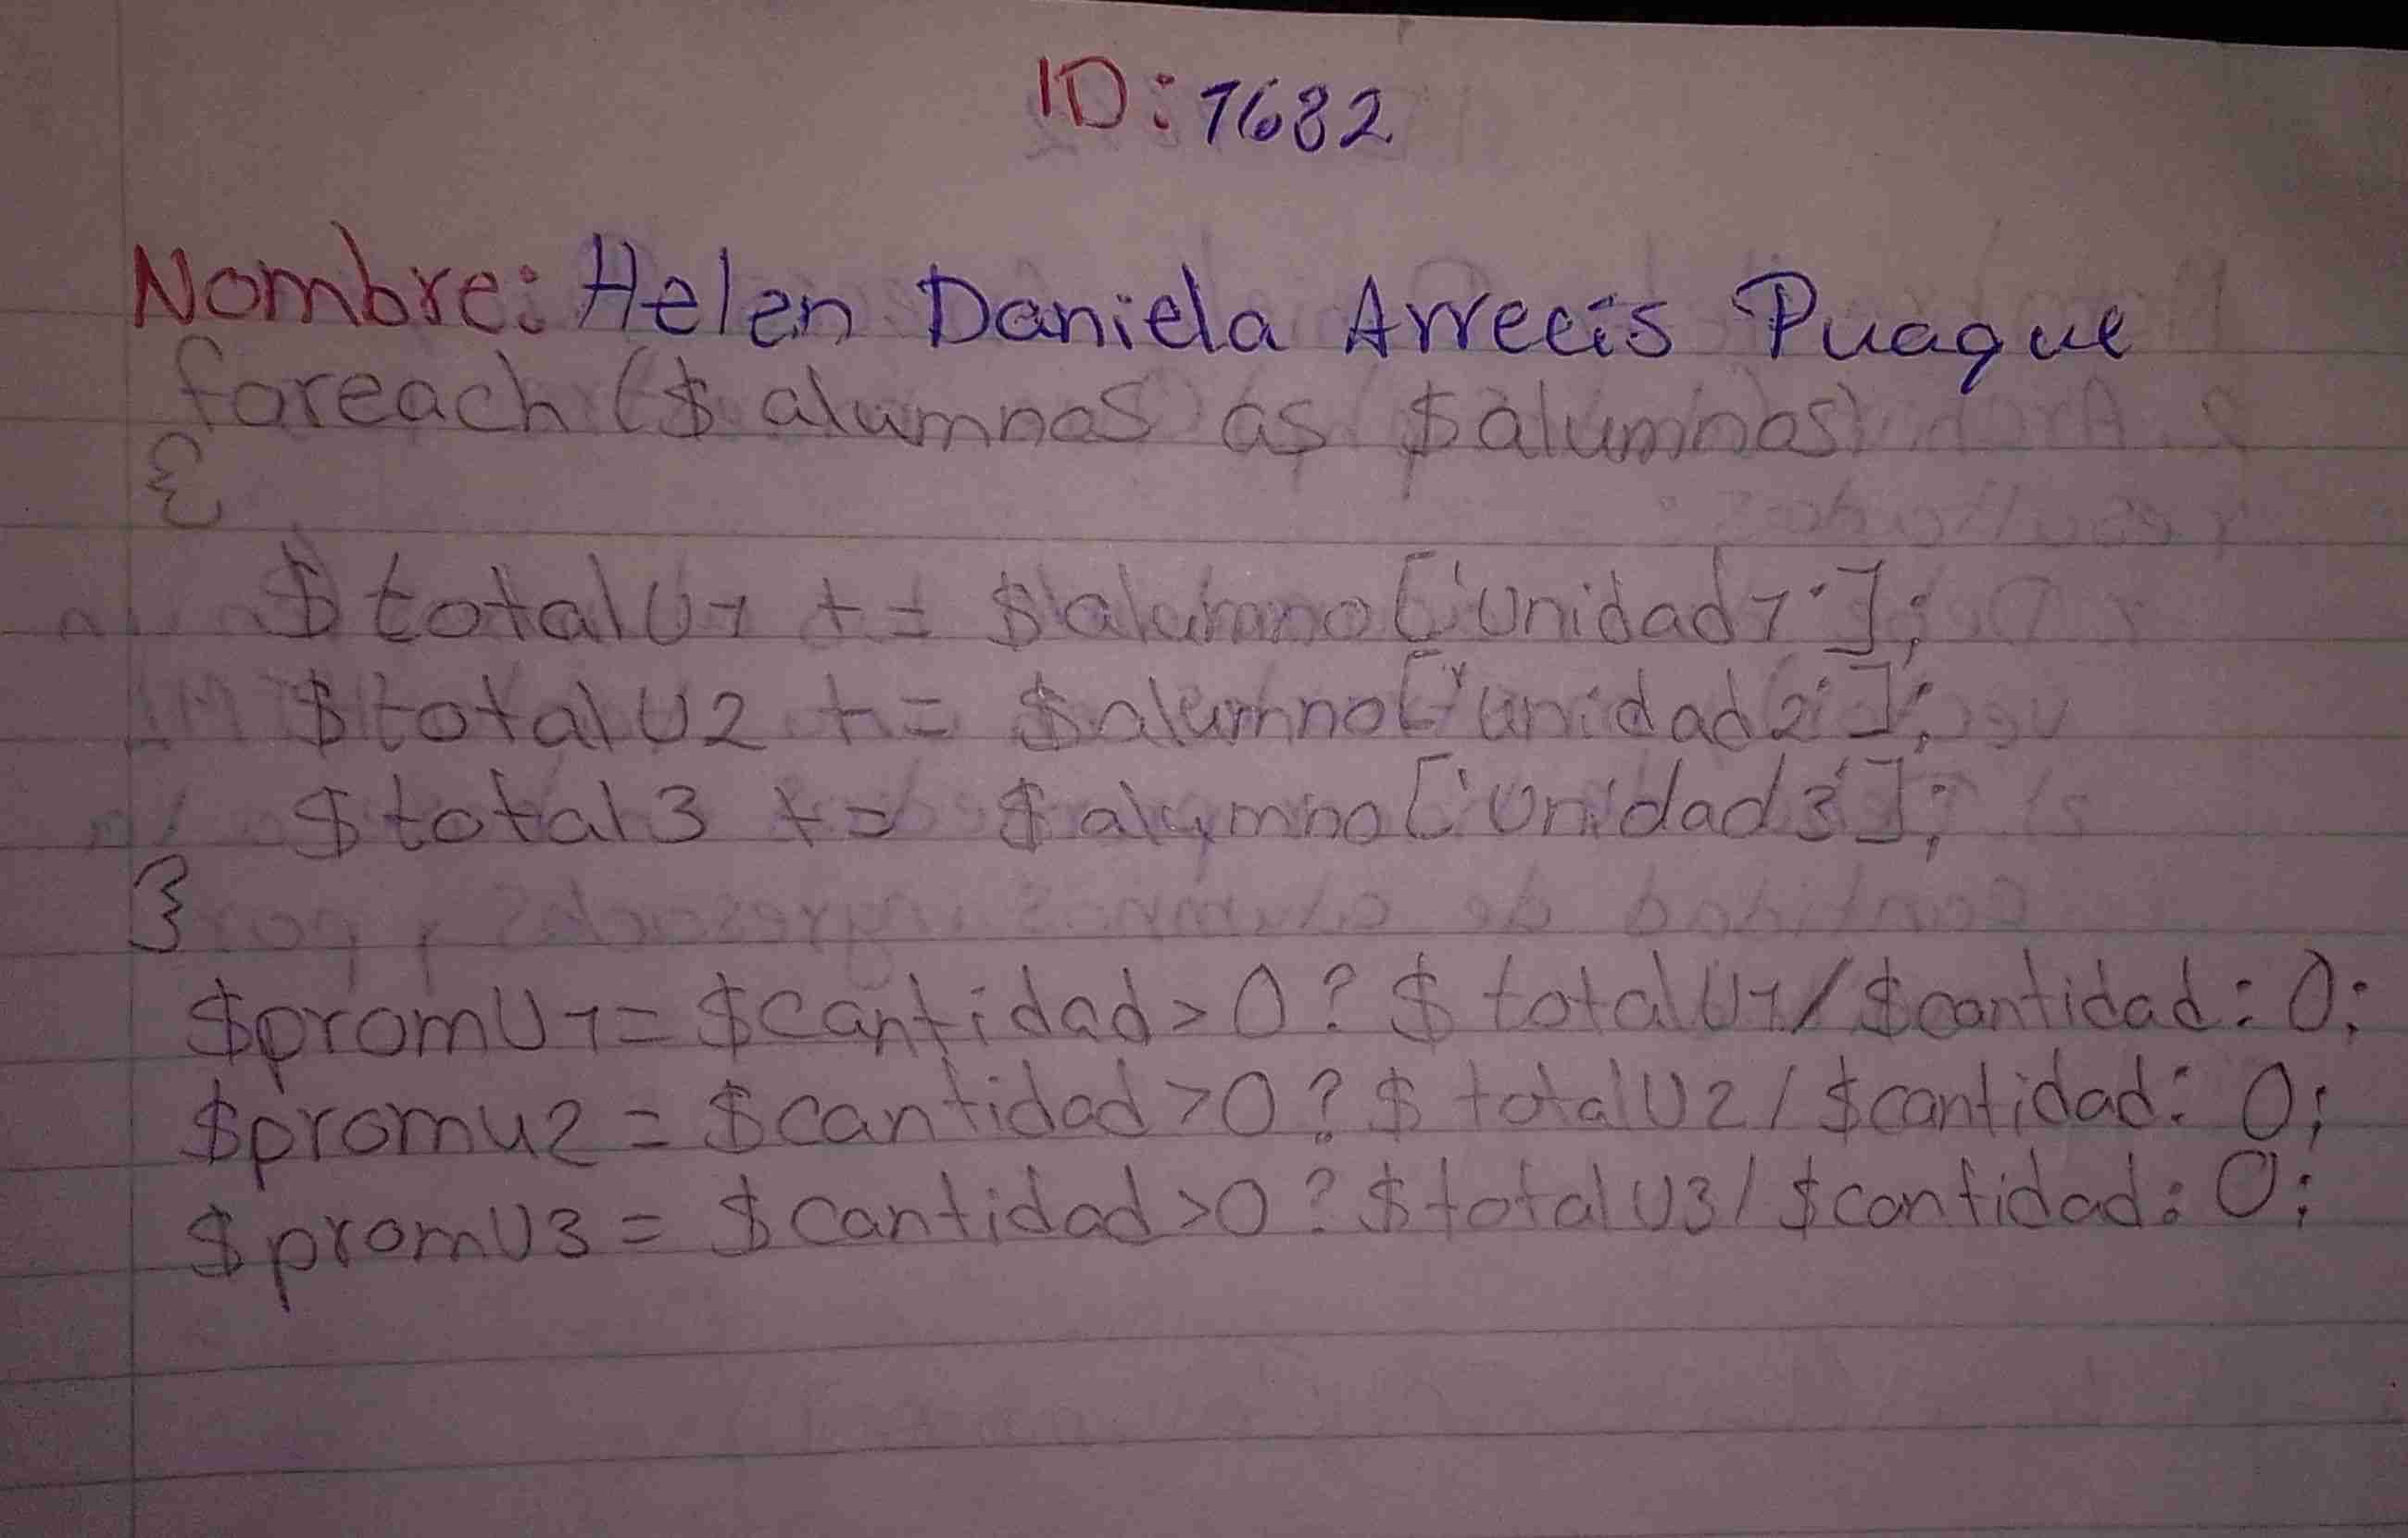 ID: 7682
Nombre: Helen Daniela Arrecis Puaque
foreach ($ alumnos as $ alumnos)
{
$ totalU1 += $ alumno ['Unidad1'];
$ totalU2 += $ alumno ['unidad2'];
$ total3 += $ alumno ['Unidad3'];
}
$promU1 = $cantidad > 0 ? $ totalU1 / $cantidad : 0;
$promu2 = $cantidad > 0 ? $ totalU2 / $cantidad : 0;
$promU3 = $cantidad > 0 ? $ totalU3 / $cantidad : 0;